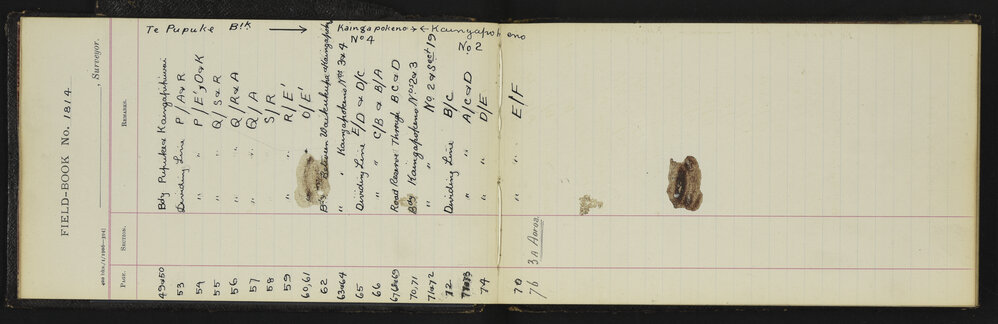 FIELD-BOOK No. 1814.
, Surveyor.
400 bks./1/1906—394]
PAGE. SECTION. REMARKS.
Te Pupuke Blk
49&50 Bdy Pupuke & Kaingapihiwai
53 Dividing Line P/A & R
54 " " P/E', O & K
55 " " Q/S & R
56 " " Q/R & A
57 " " Q/A
58 S/R
59 " " R/E'
60,61 O/E'
62 Bdy Between Waikukupa & Kaingapoky
Kaingapokeno → ← Kaingapokeno
No 4 No 2
63&64 " " Kaingapokeno Nos 3 & 4
65 Dividing Line E/D & D/C
66 " " C/B & B/A
67,68&69 Road Reserve Through B C & D
70,71 Bdy Kaingapokeno Nos 2 & 3
71&72 " " No 2 & Sect 19
72 Dividing Line B/C
" " A/C & D
74 " " D/E
70 " " E/F
76 3A Aaroa.